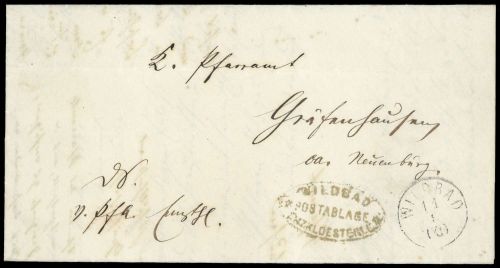 K. Pfarramt
Gräfenhausen,
oa. Neuenbürg.
DS.
v. Pfr.
WILDBAD
POSTABLAGE
ENZKLOESTERLE
WILDBAD